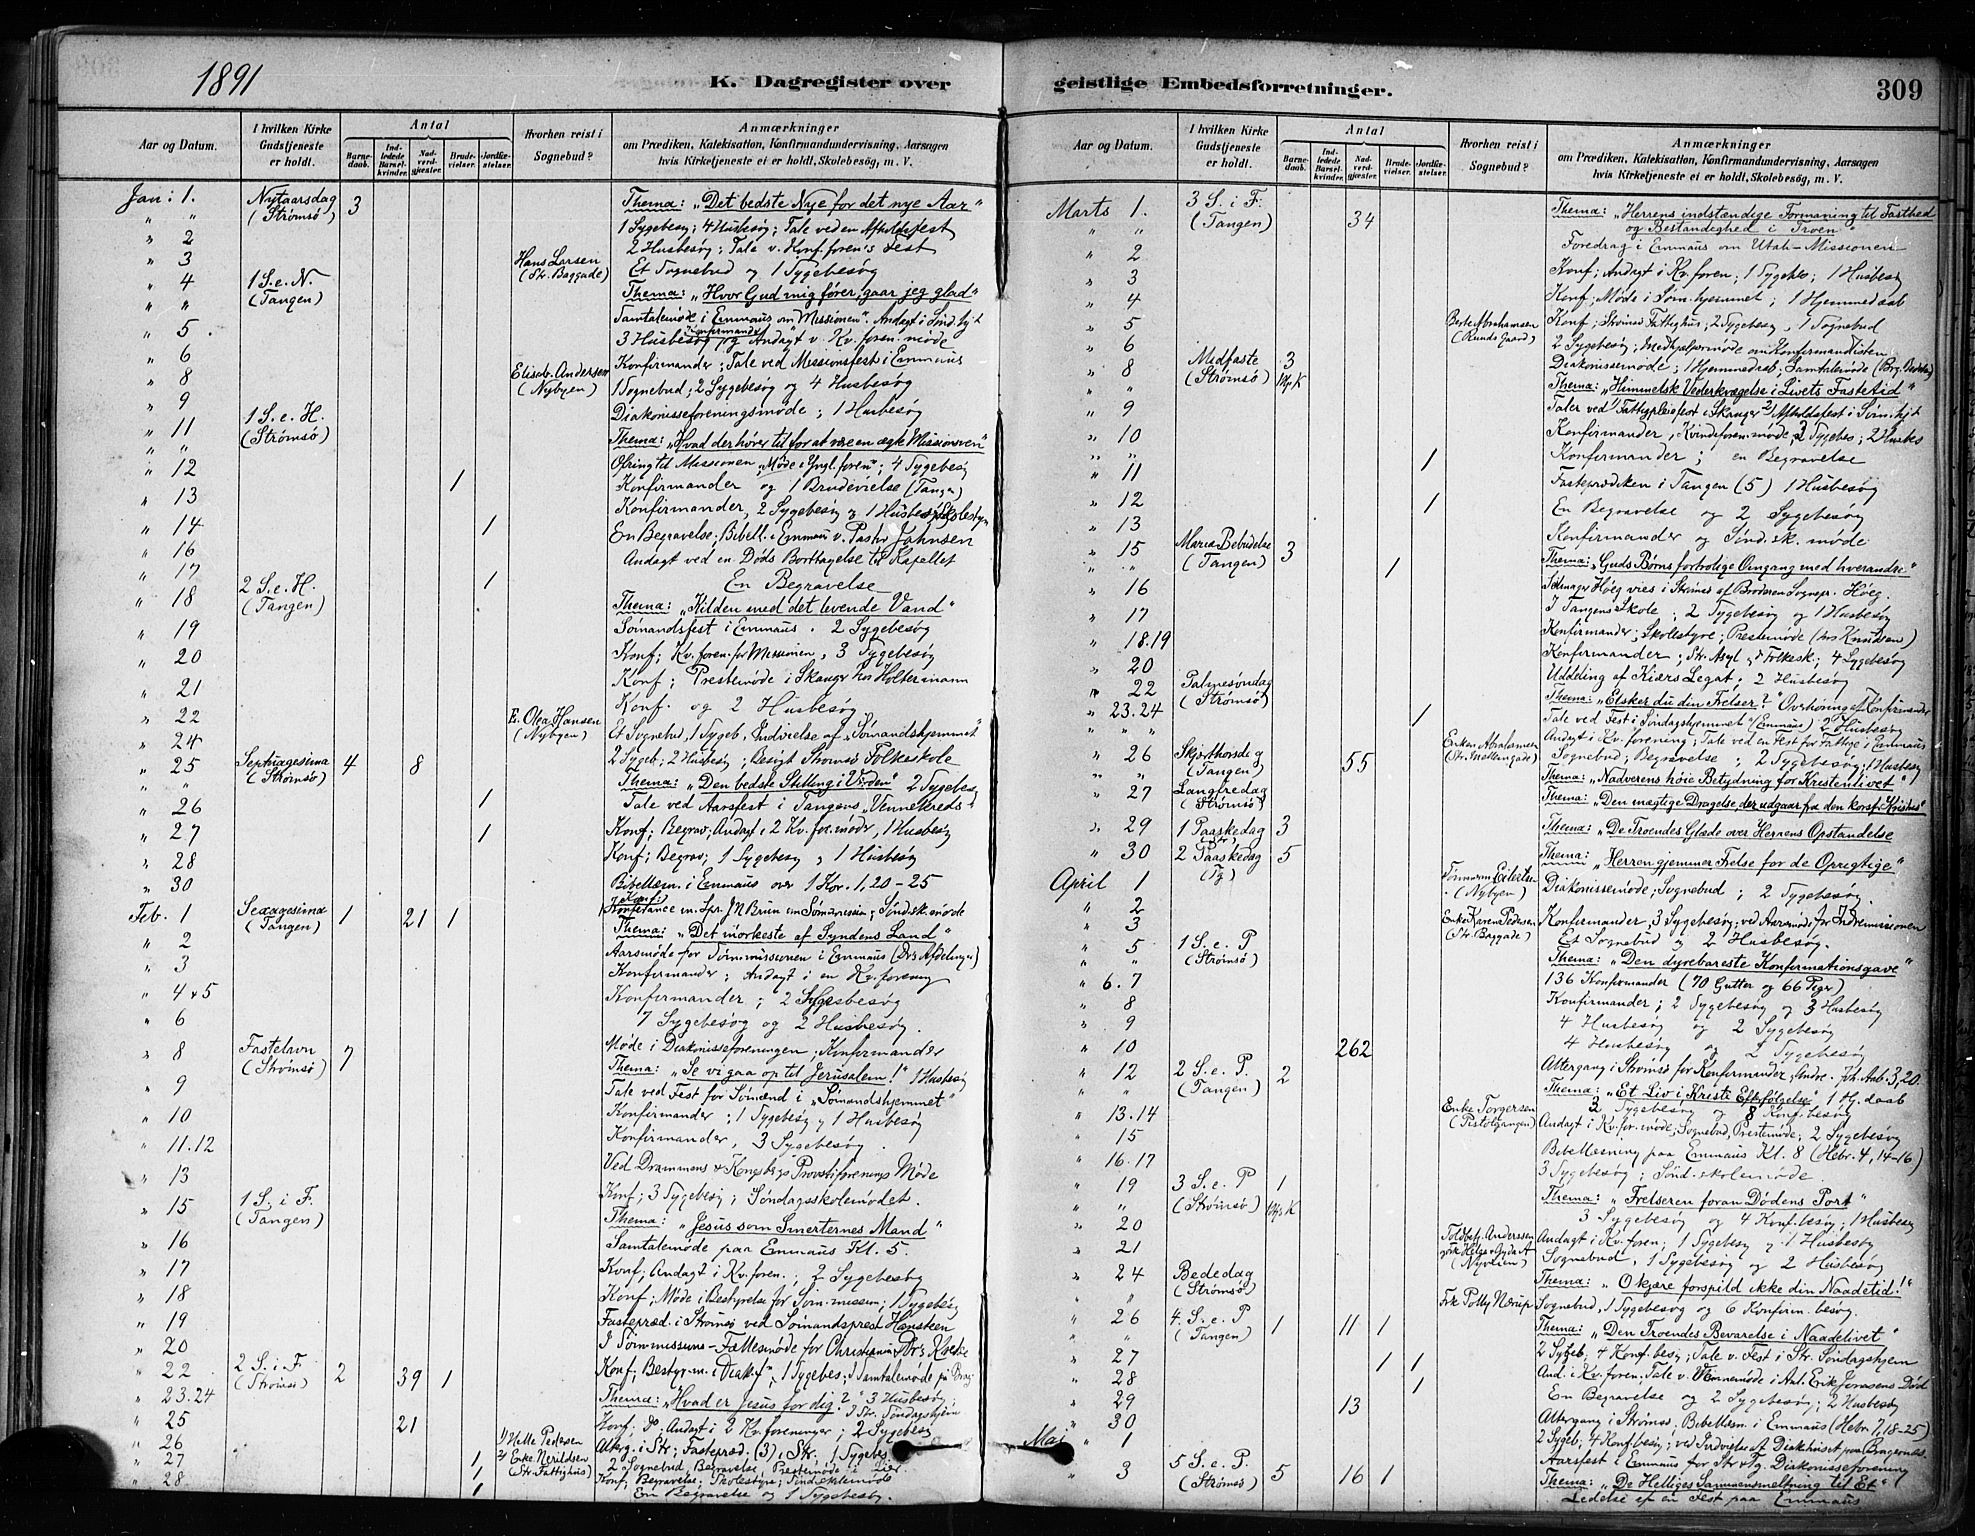 1891
K. Dagregister over
Aar og Datum.
I hvilken Kirke Gudstjeneste er holdt.
Antal
Barnedaab.
Indledede Barselkvinder.
Nadverdgjæster.
Brudevielser.
Jordfæstelser.
Hvorhen reist i Sognebud?
Anmærkninger
om Prædiken, Katekisation, Konfirmandundervisning, Aarsagen
hvis Kirketjeneste ei er holdt, Skolebesøg, m. V.
Jan: 1. Nytaarsdag (Strømsø) 3 Thema: „Det bedste Nye for det nye Aar”
" " 1 Sygebesøg; 4 Husbesøg; Tale ved en Afholdsfest
" 2 2 Husbesøg; Tale v. Konf. foren's Fest
" 3 Hans Larsen (Str. Baggade) Et Sognebud og 1 Sygebesøg
" 4 1 S. e. N. (Tangen) Thema: „Hvor Gud mig fører, gaar jeg glad”
" " Samtalemøde i Emmaus om Missionen
" 5 3 Husbesøg og Andagt v. Kv. foren. møde
" 6 Konfirmander; Tale ved Missionsfest i Emmaus
" 8 Elisab. Andersen (Nybyen) 1 Sognebud; 2 Sygebesøg og 4 Husbesøg
" 9 Diakonisseforeningsmøde; 1 Husbesøg
" 11 1 S. e. H. (Strømsø) Thema: „Hvad der hører til for at være en ægte Missionsven”
" " Ofring til Missionen; 4 Sygebesøg
" 12 1 Konfirmander og 1 Brudevielse (Tangen)
" 13 Konfirmander, 2 Sygebesøg og 1 Husbesøg
" 14 1 En Begravelse; Bibell. i Emmaus v. Pastor Johnsen
" 16 Andagt ved en Døds Borttagelse til Kapellet
" 17 1 En Begravelse
" 18 2 S. e. H. (Tangen) Thema: „Kilden med det levende Vand”
" 19 Sømandsfest i Emmaus. 2 Sygebesøg
" 20 Konf; Kv. foren. for Missionen, 3 Sygebesøg
" 21 Konf; Prestemøde i Skanger hos Holtermann
" 22 Konf. og 2 Husbesøg
" 24 E. Olea Hansen (Nybyen) Et Sognebud, 1 Sygeb, Indvielse af „Sømandshjemmet”
" 25 Septuagesima (Strømsø) 4 8 2 Sygeb; 2 Husbesøg; Besøgt Strømsø Folkeskole
" " Thema: „Den bedste Stilling i Verden” 2 Sygebesøg
" 26 1 Tale ved Aarsfest i Tangens „Vennekreds”
" 27 1 Konf; Begrav; Andagt i 2 Kv. for. møder, 1 Husbesøg
" 28 Konf; Begrav; 1 Sygebesøg og 1 Husbesøg
" 30 Bibellæsn. i Emmaus over 1 Kor. 1, 20-25
Feb. 1 Sexagesima (Tangen) 1 21 1 Thema: „Det mørkeste af Syndens Land”
" 2 Aarsmøde for Sømmissionen i Emmaus
" 3 Konfirmander; Andagt i en Kv. forening
" 4 & 5 Konfirmander; 2 Sygebesøg
" 6 7 Sygebesøg og 2 Husbesøg.
" 8 Fastelavn (Strømsø) 7 Møde i Diakonisseforeningen; Konfirmander
Thema: „Se vi gaa op til Jerusalem!” 1 Husbesøg
" 9 Tale ved Fest for Sømænd i „Sømandshjemmet”
" 10 Konfirmander; 1 Sygebesøg og 1 Husbesøg
" 11.12 Konfirmander, 3 Sygebesøg.
" 13 Ved Drammens & Kongsbergs Provstiforenings Møde
" 15 1 S. i F. (Tangen) Konf; 3 Sygebesøg; Søndagsskolemødet.
Thema: „Jesus som Smerternes Mand”
" 16 Samtalemøde paa Emmaus Kl. 5.
" 17 Konf; Andagt i Kv. foren.; 2 Sygebesøg
" 18 Konf; Møde i Bestyrelse for Søm. mission; 1 Sygebesøg
" 19 Fastepræd. i Strømsø ved Sømandsprest Hansteen
" 20 I Sømmissions-Fællesmøde for Christiania
" 22 2 S. i F. (Strømsø) 2 39 1 Konf; Bestyr. m.
" 23.24 Thema: „Hvad er Jesus for dig?” 3 Husbesøg
" 25 21 Konf; Andagt i 2 Kv. foreninger; 2 Sygebesøg
" 26 1) Helle Pedersen Alterg. i Str; Fastepræd. (3) i Str; 1 Sygebes.
" 27 1 2) Enke Nerildsen (Str. Fattighus) 2 Sognebud, Begravelse, Prestemøde i Lier
" 28 1 Konf, Begravelse, Skolestyre, Søndsskolemøde
1 En Begravelse og 1 Sygebesøg.
geistlige Embedsforretninger.
309
Aar og Datum.
I hvilken Kirke Gudstjeneste er holdt.
Antal
Barnedaab.
Indledede Barselkvinder.
Nadverdgjæster.
Brudevielser.
Jordfæstelser.
Hvorhen reist i Sognebud?
Anmærkninger
om Prædiken, Katekisation, Konfirmandundervisning, Aarsagen
hvis Kirketjeneste ei er holdt, Skolebesøg, m. V.
Marts 1. 3 S. i F. (Tangen) 34 Thema: „Herrens indstændige Formaning til Fasthed
og Bestandighed i Troen”
" " Foredrag i Emmaus om Utah-Missionen
" 2 Konf; Andagt i Kv. foren; 1 Sygebes; 1 Husbesøg
" 3 Konf; Møde i Søm. hjemmet; 1 Hjemmedaab
" 4 Konf; Strømsø Fattighus; 2 Sygebesøg, 1 Sognebud
" 5 Berte Abrahamsen (Runds Gaard) 2 Sygebesøg; Medhjælpermøde om Konfirmandlisten
" 6 Diakonissemøde; 1 Hjemmedaab; Samtalemøde
" 8 Midfaste (Strømsø) 3 Thema: „Himmelsk Vederkvægelse i Livets Fastetid”
" 9 Taler ved Fattigpleiefest i Skanger
" 10 Konfirmander, Kvindeforen. møde, 3 Sygebes; 2 Husbes
" " 1 Konfirmander; en Begravelse
" 11 Fasteprædiken i Tangen (5) 1 Husbesøg
" 12 1 En Begravelse og 2 Sygebesøg
" 13 Konfirmander og Sønd. sk. møde
" 15 Maria Bebudelse (Tangen) 3 Thema: „Guds Børns fortrolige Omgang med hverandre”
" " 1
" 16 I Tangens Skole; 2 Sygebesøg og 1 Husbesøg
" 17 Konfirmander; Skolestyre; Prestemøde (hos Knudsen)
" 18.19 Konfirmander; Str. Asyl og Folkesk; 4 Sygebesøg
" 20 Uddeling af Kiærs Legat; 2 Husbesøg
" 22 Palmesøndag (Strømsø) Thema: „Elsker du din Frelser?” Overhøring af Konfirmander
" 23.24 1 Tale ved Fest i Søndagshjemmet (Emmaus) 2 Husbesøg
" " Andagt i Kv. forening; Tale ved en Fest for Fattige i Emmaus
" 26 Skjærthorsdag (Tangen) 55 Sognebud; Begravelse, 2 Sygebesøg; 1 Husbesøg
" " Thema: „Nadverens høie Betydning for Kristenlivet”
" 27 Langfredag (Strømsø) Thema: „Den mægtige Dragelse, der udgaar fra den korsf. Kristus”
" 29 1 Paaskedag (Str.) 3 Thema: „De Troendes Glæde over Herrens Opstandelse
" 30 2 Paaskedag (Tg) 5 Thema: „Herren gjemmer Frelse for de Oprigtige”
April 1 (Nybyen) Diakonissemøde; Sognebud; 2 Sygebesøg.
" 2 Konfirmander, 3 Sygebesøg, ved Aarsmøde for Indremissionen
" 3 Enke Karen Pedersen (Str. Baggade) Et Sognebud og 2 Husbesøg.
" 5 1 S. e. P (Strømsø) Thema: „Den dyrebareste Konfirmationsgave”
" " 136 Konfirmander (70 Gutter og 66 Piger)
" 6.7 Konfirmander; 2 Sygebesøg og 3 Husbesøg
" 8 4 Husbesøg og 2 Sygebesøg
" 9 4 Husbesøg og 2 Sygebesøg
" 10 262 Altergang i Strømsø for Konfirmander, Andre. Joh. Aab. 3, 20.
" 12 2 S. e. P. (Tangen) 2 Thema: „Et Liv i Kristi Efterfølgelse” 1 Hj. daab
" " 2 Sygebesøg og 8 Konf. besøg
" 13.14 Enke Torgersen (Pistolgangen) Andagt i Kv. for. møde, Sognebud, Prestemøde; 2 Sygebesøg
" 15 Bibellæsning paa Emmaus Kl. 8 (Hebr. 4, 14-16)
" 16.17 3 Sygebesøg; Sønd. skolemøde.
" 19 3 S. e. P (Strømsø) 1 Thema: „Frelseren foran Dødens Port”
" " 3 Sygebesøg og 4 Konf. besøg; 1 Husbesøg
" 20 Andagt i Kv. foren. 1 Sygebesøg og 1 Husbesøg
" 21 Sognebud, 1 Sygebesøg og 2 Husbesøg
" 24 Bededag (Strømsø) Thema: „O kjære forspild ikke din Naadetid!”
" " Frk Polly Nørup Sognebud, 1 Sygebesøg og 6 Konfirm. besøg.
" 26 4. S. e. P (Tangen) 1 11 1 Thema: „Den Troendes Bevarelse i Naadelivet”
" " 2 Sygeb. 4 Konf. besøg; Tale v. Fest i Str. Søndagshjem
" 27 1 1 And. i Kv. foren. Tale v. Vennemøde i Anl. Erik Jonasens Død
" 28 1 En Begravelse og 2 Sygebesøg; 2 Husbesøg
" 29 13 Altergang i Strømsø. Bibellæsn. i Emmaus (Hebr. 7, 18-25)
" 30 2 Sygeb; 4 Konf. besøg; ved Indvielse af Diakhuset paa Bragernæs
Mai 1 Aarsfest i Emmaus for Str & Tg. Diakonisseforening
" 3 5 S. e. P. (Strømsø) 5 16 1 Thema: „De Helliges Sammensmeltning til Et”
Ledelse af en Fest paa Emmaus